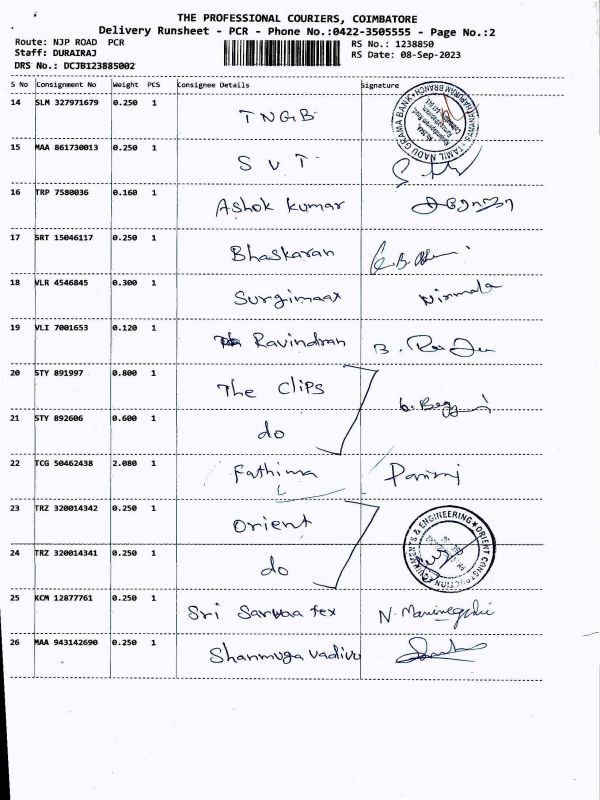 THE PROFESSIONAL COURIERS, COIMBATORE
Delivery Runsheet - PCR - Phone No.:0422-3505555 - Page No.:2
Route: NJP ROAD PCR
RS No.: 1238850
Staff: DURAIRAJ
RS Date: 08-Sep-2023
DRS No.: DCJB123885002
S No Consignment No Weight PCS Consignee Details Signature
14 SLM 327971679 0.250 1 TNGB
TAMIL NADU GRAMA BANK
15 MAA 861730013 0.250 1 S V T
16 TRP 7580036 0.160 1 Ashok kumar
17 SRT 15046117 0.250 1 Bhaskaran
18 VLR 4546845 0.300 1 Surgimaax Nirmala
19 VLI 7001653 0.120 1 Ravindran
20 STY 891997 0.800 1 The Clips
21 STY 892606 0.600 1 do
22 TCG 50462438 2.080 1 Fathima
23 TRZ 320014342 0.250 1 Orient
ORIENT CONSTRUCTION EQUIPMENTS & ENGINEERING
24 TRZ 320014341 0.250 1 do
25 KCM 12877761 0.250 1 Sri Sarvaa tex
26 MAA 943142690 0.250 1 Shanmuga vadivu